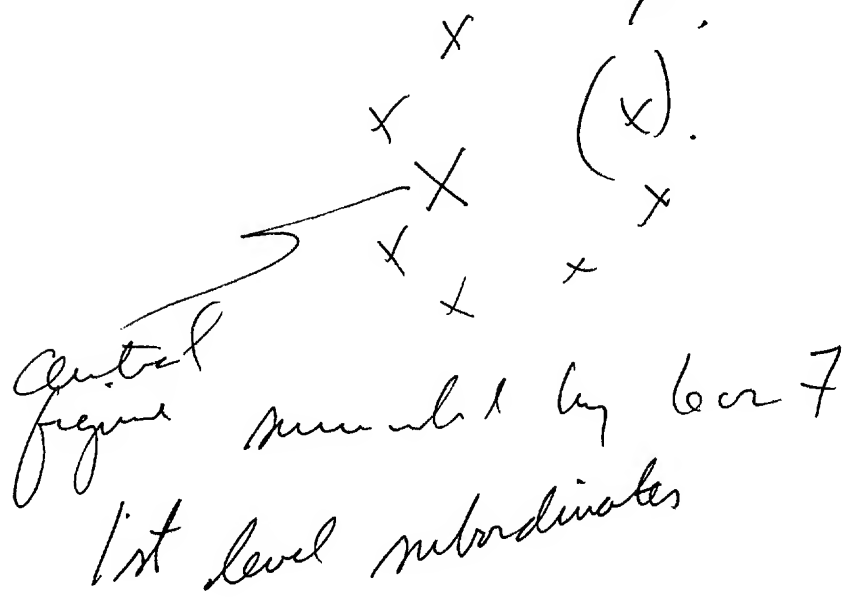 x
(x).
x
X
x
x
x
x
central
figure surrounded by 6 or 7
1st level subordinates